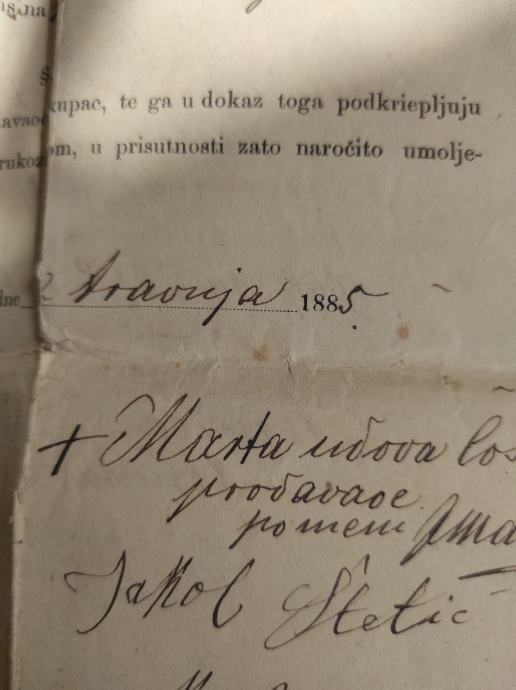 §
kupac, te ga u dokaz toga podkriepljuju
om, u prisutnosti zato naročito umolje-
dne 2 travnja 1885.
+ Marta udova
prodavaoc
pomeni
Jakob Stetić